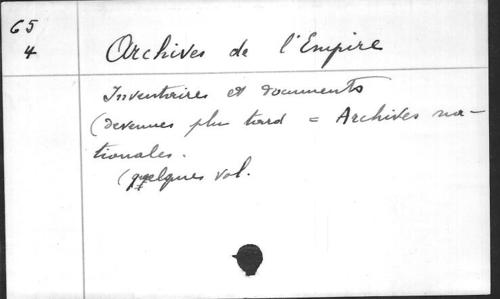 65
4
Archives de l'Empire
Inventaires et documents
(devenues plus tard = Archives na-
tionales.
(quelques vol.